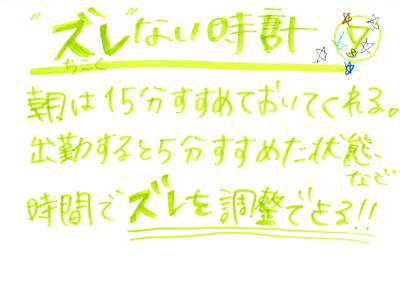 "ズレ"ない時計
ちこく
朝は15分すすめておいてくれる。
出勤すると5分すすめた状態、
など
時間でズレを調整できる!!